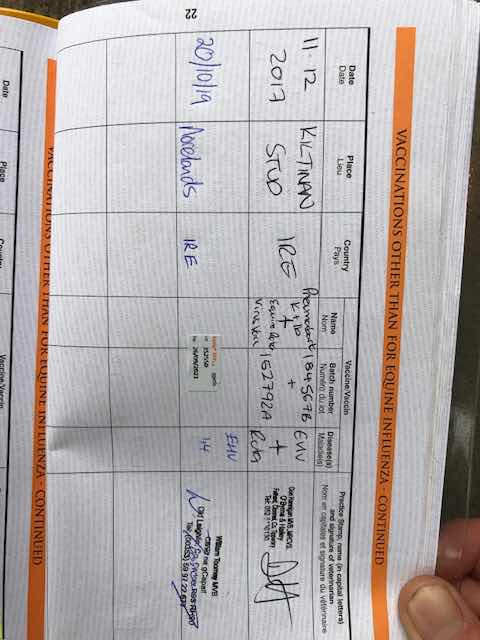 VACCINATIONS OTHER THAN FOR EQUINE INFLUENZA - CONTINUED
Date
Date
Place
Lieu
Country
Pays
Vaccine/Vaccin
Name
Nom
Batch number
Numéro du lot
Disease(s)
Maladie(s)
Practice Stamp, name (in capital letters)
and signature of veterinarian
Nom en capitales et signature du vétérinaire
11.12
2017
KILTINAN
STUD
IRE
Pneumabort
K + 1b
+
Equine Rota
Virus Vacc
184567B
+
152792A
EHV
+
Rota
20/10/19
Morelands
IRE
EHV
1,4
William Toomey MVB
22
VACCINATIONS OTHER THAN FOR EQUINE INFLUENZA - CONTINUED
Date
Place
Country
Vaccine/Vaccin